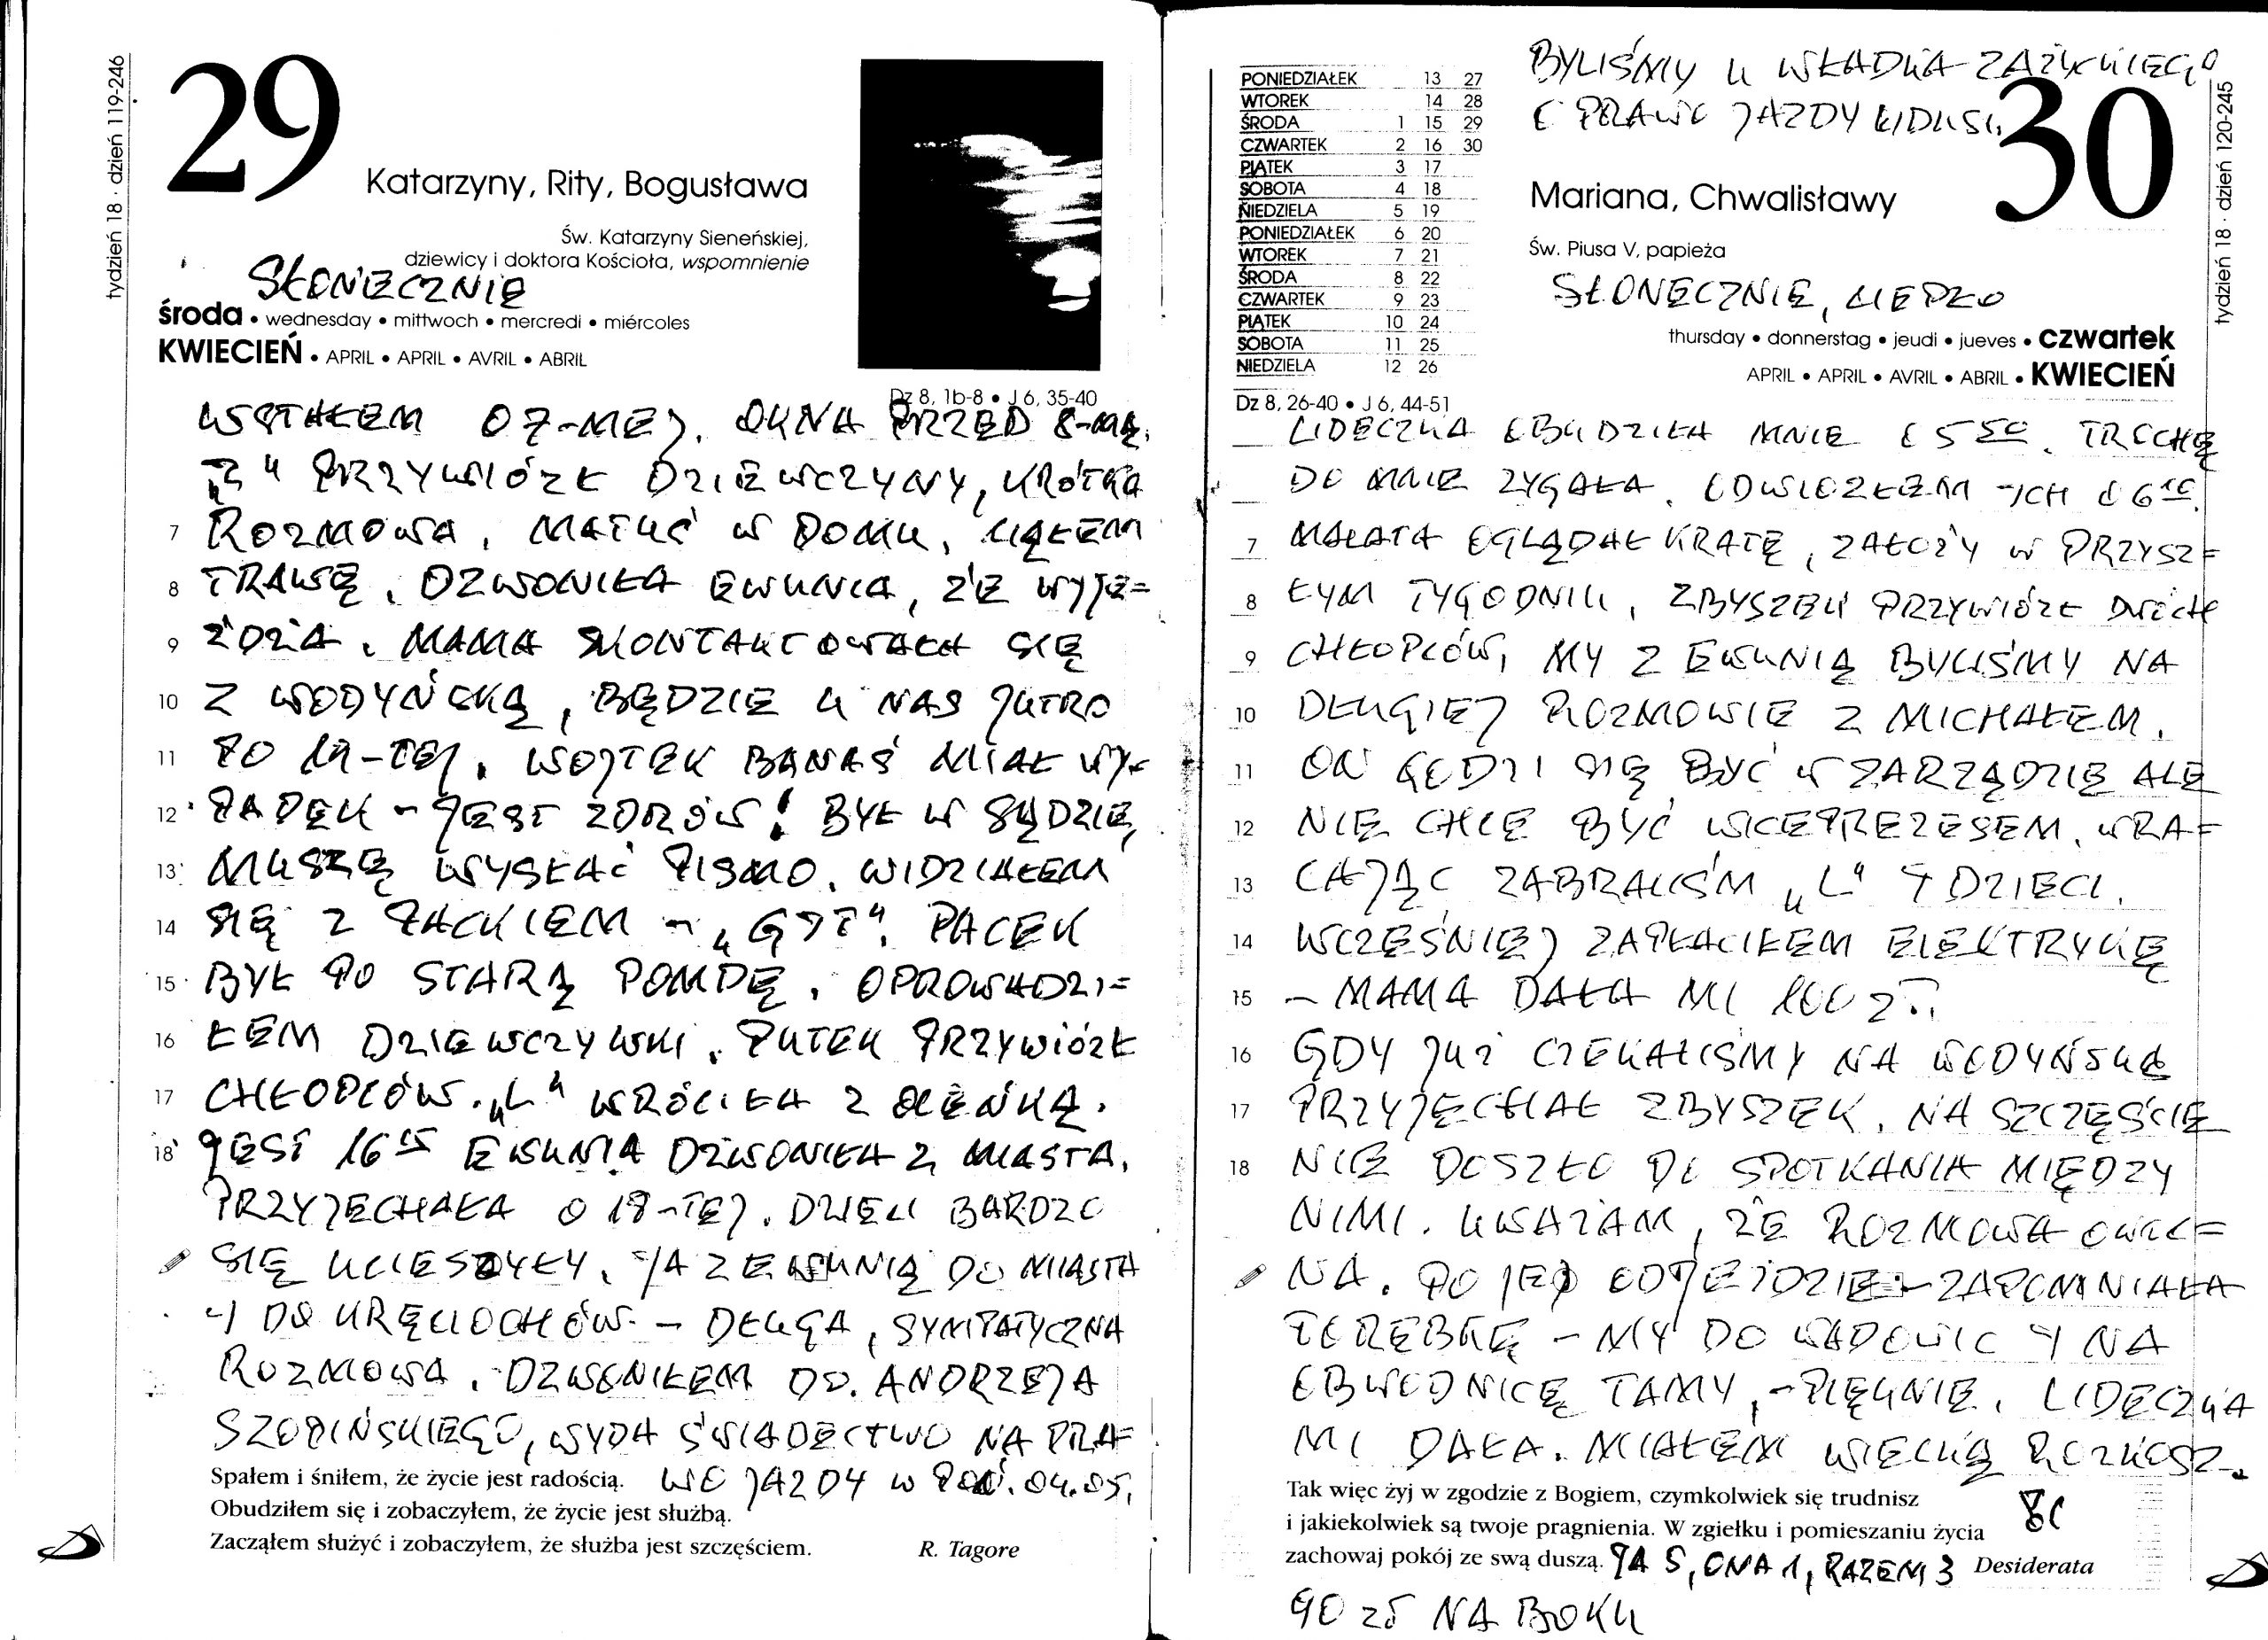 tydzień 18 · dzień 119-246
29
Katarzyny, Rity, Bogusława
Św. Katarzyny Sieneńskiej,
dziewicy i doktora Kościoła, wspomnienie
SŁONECZNIE
środa • wednesday • mittwoch • mercredi • miércoles
KWIECIEŃ • APRIL • APRIL • AVRIL • ABRIL
Dz 8, 1b-8 • J 6, 35-40
WSTAŁEM O 7-MEJ. OKNA PRZED 8-MĄ.
PRZYWIÓZŁ DZIEWCZYNY, KRÓTKA
7 ROZMOWA, MATUŚ W DOMU, CIĄŁEM
8 TRAWĘ. DZWONIŁA EWUNIA, ŻE WYJE=
9 ŻDŻA. MAMA SKONTAKTOWAŁA SIĘ
10 Z WODYŃSKĄ, BĘDZIE U NAS JUTRO
11 PO 14-TEJ. WOJTEK BANAŚ MIAŁ WY=
12 PADEK - JEST ZDRÓW! BYŁ W SĄDZIE,
13 MUSZĘ WYSŁAĆ PISMO. WIDZIAŁEM
14 SIĘ Z JACKIEM - PACEK
15 BYŁ PO STARĄ POMPĘ. OPROWADZI=
16 ŁEM DZIEWCZYNKI. PUTEK PRZYWIÓZŁ
17 CHŁOPCÓW. „L" WRÓCIŁA Z OLEŃKĄ.
18 JEST 16 15 EWUNIA DZWONIŁA Z MIASTA,
PRZYJECHAŁA O 18-TEJ. DZIECI BARDZO
SIĘ UCIESZYŁY. JA Z EWUNIĄ DO MIASTA
I DO KRĘCIOCHÓW - DŁUGA, SYMPATYCZNA
ROZMOWA. DZWONIŁEM DO. ANDRZEJA
SZOPIŃSKIEGO, WYDA ŚWIADECTWO NA PRA=
WO JAZDY W 04.05,
Spałem i śniłem, że życie jest radością.
Obudziłem się i zobaczyłem, że życie jest służbą.
Zacząłem służyć i zobaczyłem, że służba jest szczęściem.
R. Tagore
BYLIŚMY U WŁADKA ZAŻYCKIEGO
O PRAWO JAZDY LIDUSI.
PONIEDZIAŁEK 13 27
WTOREK 14 28
ŚRODA 1 15 29
CZWARTEK 2 16 30
PIĄTEK 3 17
SOBOTA 4 18
NIEDZIELA 5 19
PONIEDZIAŁEK 6 20
WTOREK 7 21
ŚRODA 8 22
CZWARTEK 9 23
PIĄTEK 10 24
SOBOTA 11 25
NIEDZIELA 12 26
30
tydzień 18 · dzień 120-245
Mariana, Chwalisławy
Św. Piusa V, papieża
SŁONECZNIE, CIEPŁO
thursday • donnerstag • jeudi • jueves • czwartek
APRIL • APRIL • AVRIL • ABRIL • KWIECIEŃ
Dz 8, 26-40 • J 6, 44-51
LIDECZKA OBUDZIŁA MNIE O 5 50. TROCHĘ
DO MNIE ZYGAŁA. ODWIOZŁEM ICH O 6 10.
7 MAŁATA OGLĄDAŁ KRATĘ, ZAŁOŻY W PRZYSZ=
8 ŁYM TYGODNIU, ZBYSZEK PRZYWIÓZŁ DWÓCH
9 CHŁOPCÓW, MY Z EWUNIĄ BYLIŚMY NA
10 DŁUGIEJ ROZMOWIE Z MICHAŁEM.
11 ON GODZI SIĘ BYĆ W ZARZĄDZIE ALE
12 NIE CHCE BYĆ WICEPREZESEM. WRA=
13 CAJĄC ZABRALIŚM „L" I DZIECI.
14 WCZEŚNIEJ ZAPŁACIŁEM ELEKTRYKĘ
15 - MAMA DAŁA MI 100 ZŁ.
16 GDY JUŻ CZEKALIŚMY NA WODYŃSKĄ
17 PRZYJECHAŁ ZBYSZEK. NA SZCZĘŚCIE
18 NIE DOSZŁO DO SPOTKANIA MIĘDZY
NIMI. UWAŻAM, ŻE ROZMOWA OWOC=
NA. PO JEJ ODJEŹDZIE - ZAPOMNIAŁA
TOREBKĘ - MY DO WADOWIC I NA
OBWODNICĘ TAMY, - PIĘKNIE. LIDECZKA
MI DAŁA. MIAŁEM WIELKĄ ROZKOSZ.
Tak więc żyj w zgodzie z Bogiem, czymkolwiek się trudnisz
i jakiekolwiek są twoje pragnienia. W zgiełku i pomieszaniu życia
zachowaj pokój ze swą duszą.
Desiderata
JA 5, ONA 1, RAZEM 3
90 ZŁ NA BOKU